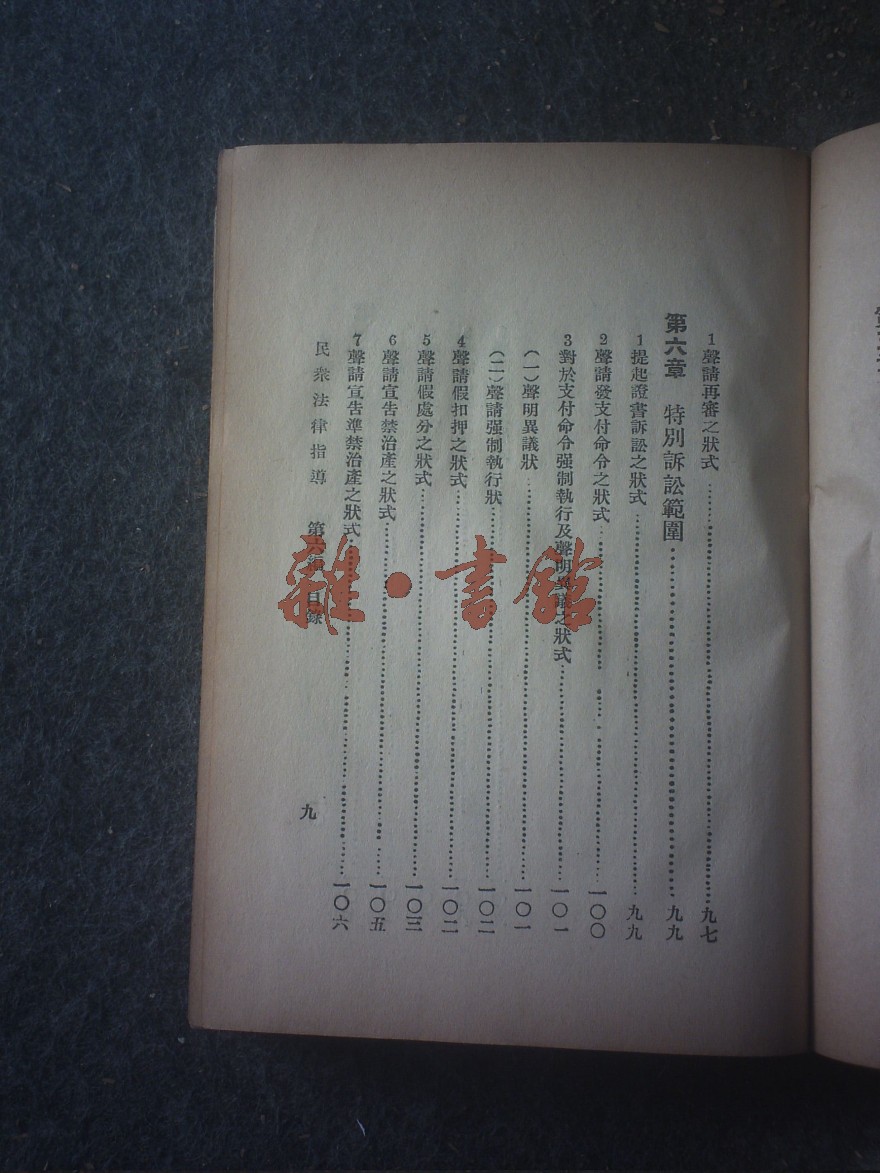 1 聲請再審之狀式…………九七
第六章　特別訴訟範圍…………九九
1 提起證書訴訟之狀式…………九九
2 聲請發支付命令之狀式…………一〇〇
3 對於支付命令强制執行及聲明異議之狀式…………一〇一
(一)聲明異議狀…………一〇一
(二)聲請强制執行狀…………一〇二
4 聲請假扣押之狀式…………一〇二
5 聲請假處分之狀式…………一〇三
6 聲請宣告禁治產之狀式…………一〇五
7 聲請宣告準禁治產之狀式…………一〇六
民衆法律指導　第六編　目錄　九
雜·書館